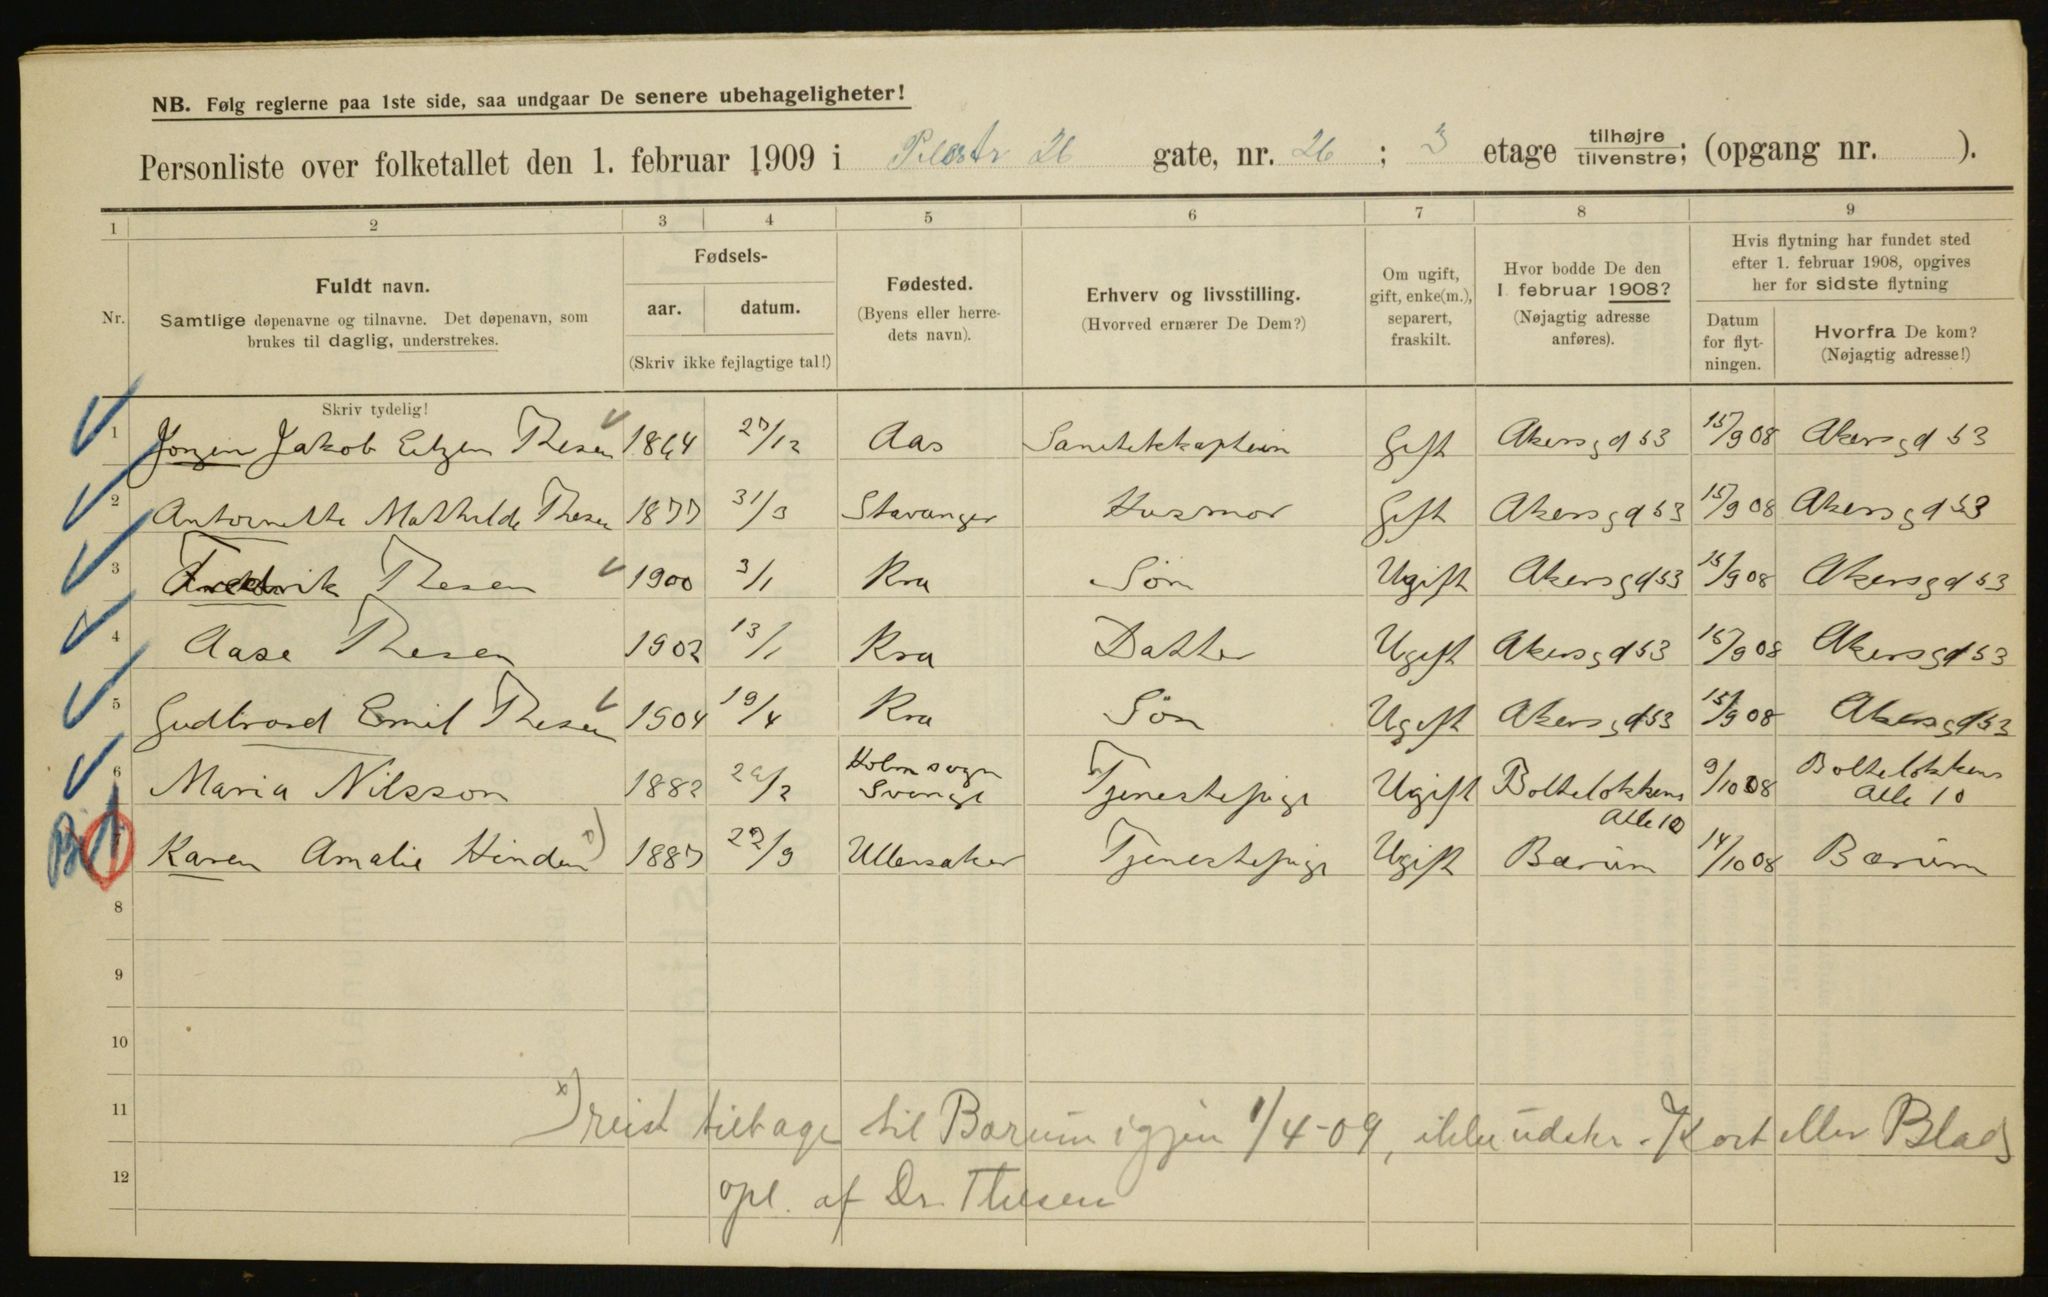 NB. Følg reglerne paa 1ste side, saa undgaar De senere ubehageligheter!
Personliste over folketallet den 1. februar 1909 i Pilestr 26 gate, nr. 26 ; 3 etage tilhøjre tilvenstre; (opgang nr. ).
1 2 3 4 5 6 7 8 9
Nr.
Fuldt navn.
Samtlige døpenavne og tilnavne. Det døpenavn, som
brukes til daglig, understrekes.
Skriv tydelig!
Fødsels-
aar. datum.
(Skriv ikke fejlagtige tal!)
Fødested.
(Byens eller herre-
dets navn).
Erhverv og livsstilling.
(Hvorved ernærer De Dem?)
Om ugift,
gift, enke(m.),
separert,
fraskilt.
Hvor bodde De den
1 februar 1908?
(Nøjagtig adresse
anføres).
Hvis flytning har fundet sted
efter 1. februar 1908, opgives
her for sidste flytning
Datum
for flyt-
ningen.
Hvorfra De kom?
(Nøjagtig adresse!)
1 Jørgen Jakob Eitzen Thesen 1864 27/12 Aas Sanitetskaptein Gift Akersgd 53 15/9 08 Akersgd 53
2 Antoinette Mathilde Thesen 1877 31/3 Stavanger Husmor Gift Akersgd 53 15/9 08 Akersgd 53
3 Fredrik Thesen 1900 3/1 Kra Søn Ugift Akersgd 53 15/9 08 Akersgd 53
4 Aase Thesen 1902 13/1 Kra Datter Ugift Akersgd 53 15/9 08 Akersgd 53
5 Gudbrand Emil Thesen 1904 19/4 Kra Søn Ugift Akersgd 53 15/9 08 Akersgd 53
6 Maria Nilsson 1882 /2 Holm sogn Sverige Tjenestepige Ugift Bolteløkkens Alle 10 9/10 08 Bolteløkkens Alle 10
7 Karen Amalie Hinden 1887 27/9 Ullensaker Tjenestepige Ugift Bærum 14/10 08 Bærum
8
9
10
11 x) reist tilbage til Bærum igjen 1/4-09, ikke udskr. Kort eller Blad,
12 opl. af Dr. Thesen